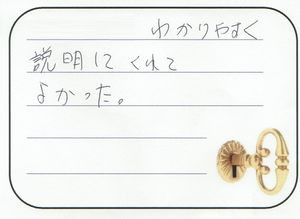 わかりやすく
説明してくれて
よかった。